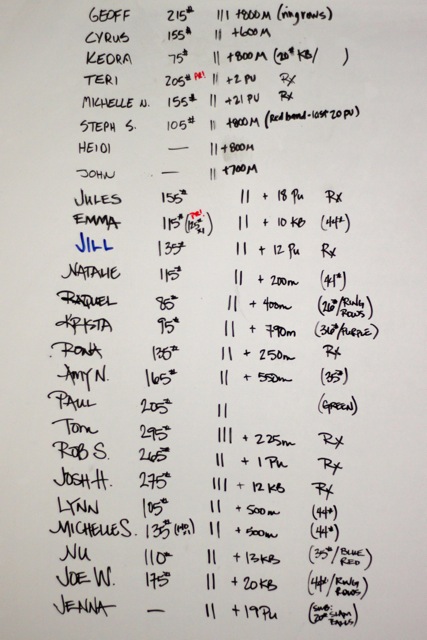 GEOFF 215# III +800M (ringrows)
CYRUS 155# II +600M
KEDRA 75# II +800M (20# KB/ )
TERI 205# PR! II +2 PU Rx
MICHELLE N. 155# II +21 PU Rx
STEPH S. 105# II +800M (Red band-last 20 PU)
HEIDI — II +800M
JOHN — II +700M
JULES 155# II + 18 Pu Rx
EMMA 115# (125# x1) PR! II + 10 KB (44#)
JILL 135# II + 12 Pu Rx
NATALIE 115# II + 200m (44#)
RAQUEL 85# II + 400m (26#/RING ROWS)
KRISTA 95# II + 790m (36#/PURPLE)
RONA 135# II + 250m Rx
AMY N. 165# II + 550m (35#)
PAUL 205# II (GREEN)
Tom 295# III + 225m Rx
ROB S. 265# II + 1 Pu Rx
JOSH H. 275# III + 12 KB Rx
LYNN 105# II + 500m (44#)
MICHELLE S. 135# II + 500m (44#)
NU 110# II + 13 KB (35#/BLUE RED)
JOE W. 175# II + 20 KB (44#/RING ROWS)
JENNA — II + 19 PU (SUB: 20# SLAM BALLS)